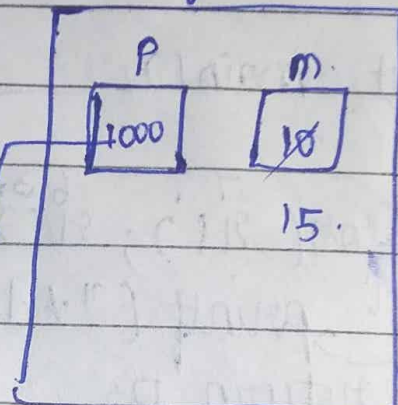 P m.
1000 10
15.